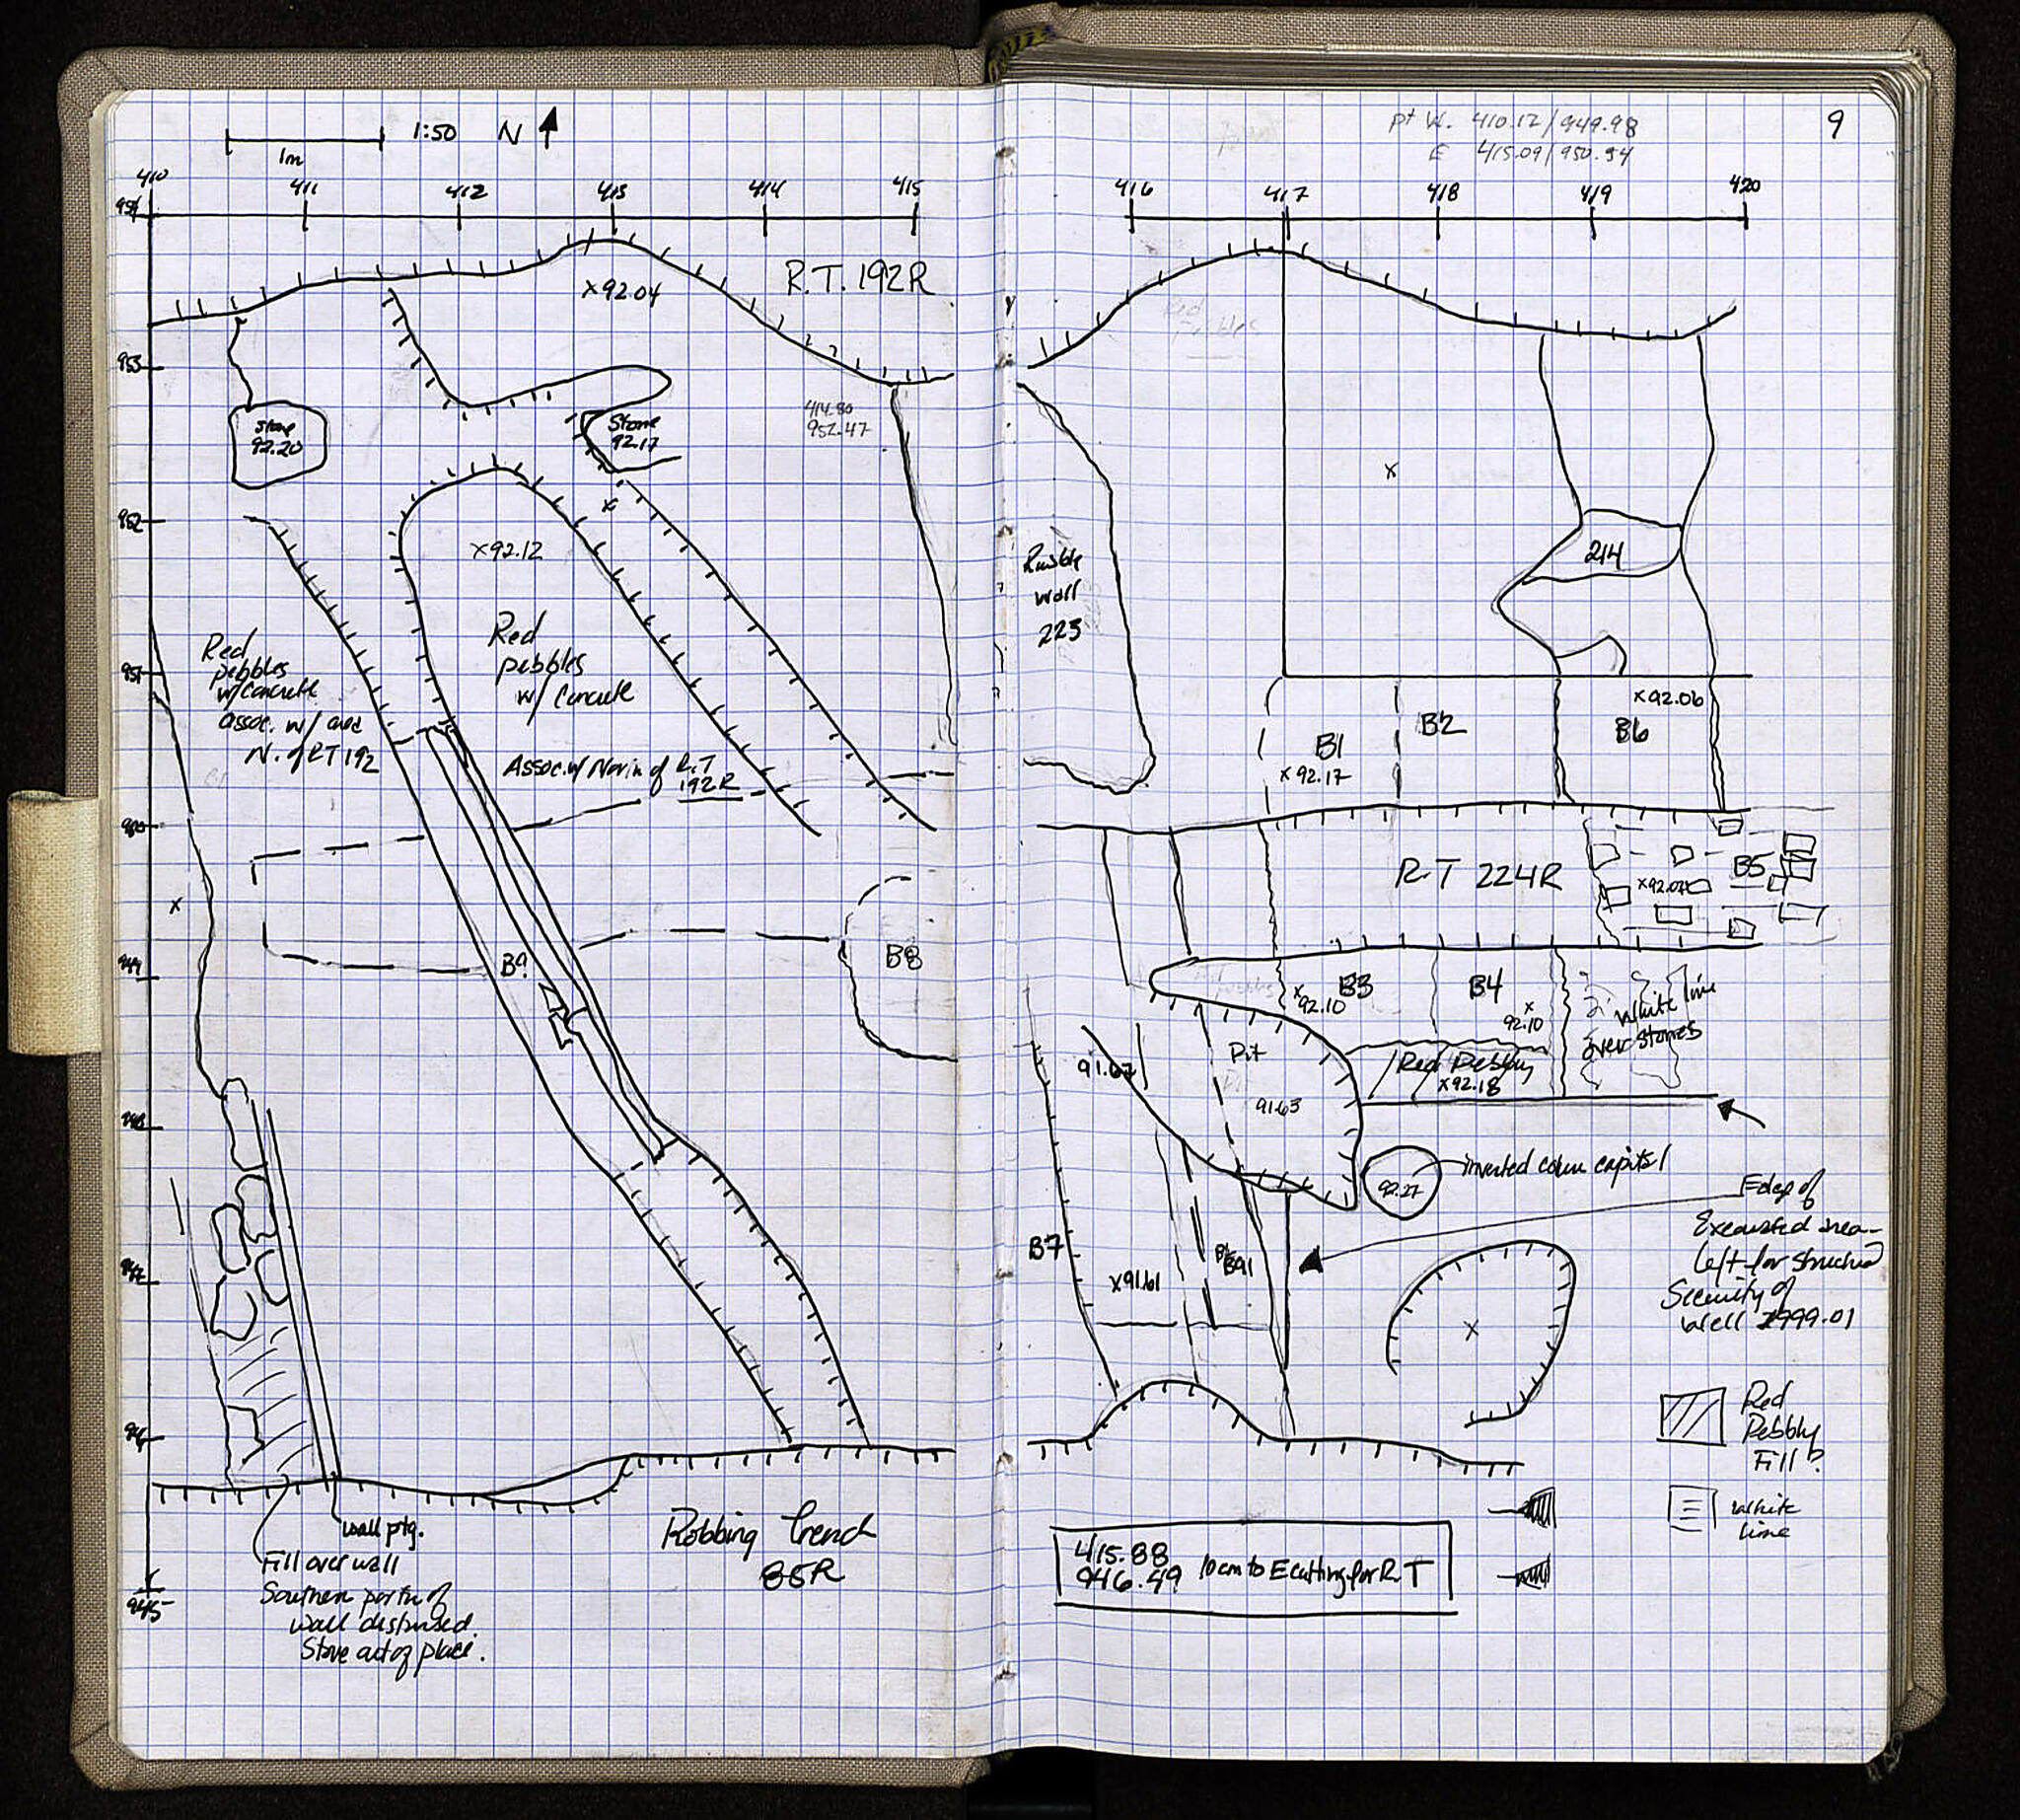 1:50 N
1m
410 411 412 413 414 415
954
953
952
951
950
949
948
947
946
945
x 92.04
R.T. 192R
Stone
92.20
Stone
92.17
414.80
952.47
x 92.12
Red
pebbles
w/concrete
assoc. w/ area
N. of RT 192
Red
pebbles
w/ concrete
Assoc. w/ North of R.T
192R
B9
B8
wall ptg.
Fill over wall
Southern portion of
wall disturbed.
Stone out of place.
Robbing Trench
85R
pt W. 410.12/949.98
E 415.09/950.54
9
416 417 418 419 420
Red
Pebbles
Rubble
wall
223
x
214
B1
x 92.17
B2
x 92.06
B6
R.T 224R
B5
x92.07
x
92.10
B3
B4
x
92.10
White lime
over stones
Red Pebbly
x 92.18
Pit
91.67
91.63
92.27
inverted column capital
Edge of
Excavated area -
left for structural
Security of
well 1999.01
B7
x91.61
B91
x
Red
Pebbly
Fill?
White
lime
415.88
946.49 10cm to E cutting for R.T